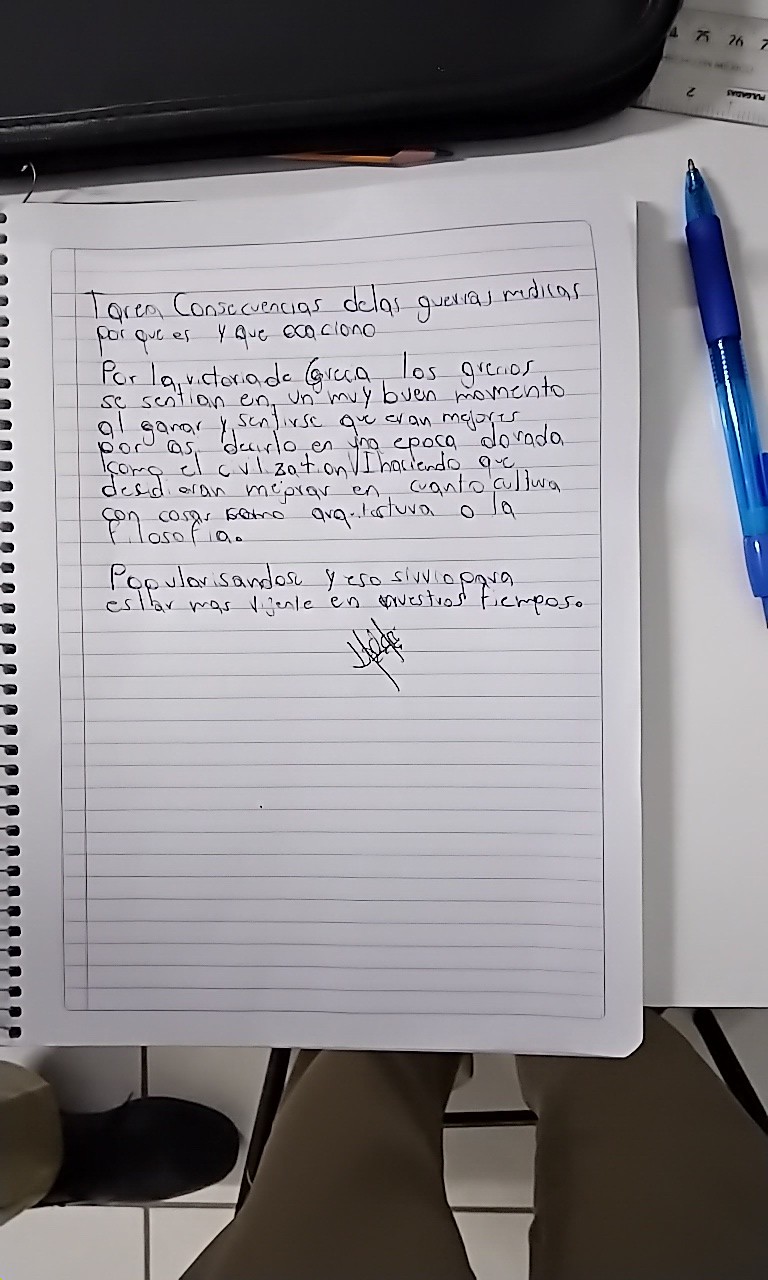 Tarea Consecuencias delas guerras medicas
por que es y que ocaciono
Por la victoria de Grecia los grecios
se sentian en un muy buen momento
al ganar y sentirse que eran mejores
por asi decirlo en una epoca dorada
como el civilization VI haciendo que
desidieran mejorar en cuanto cultura
con cosas como arquitectura o la
filosofia.
Popularisandose y eso sirvio para
estar mas vijente en nuestros tiempos.
25 26
2 PULGADAS